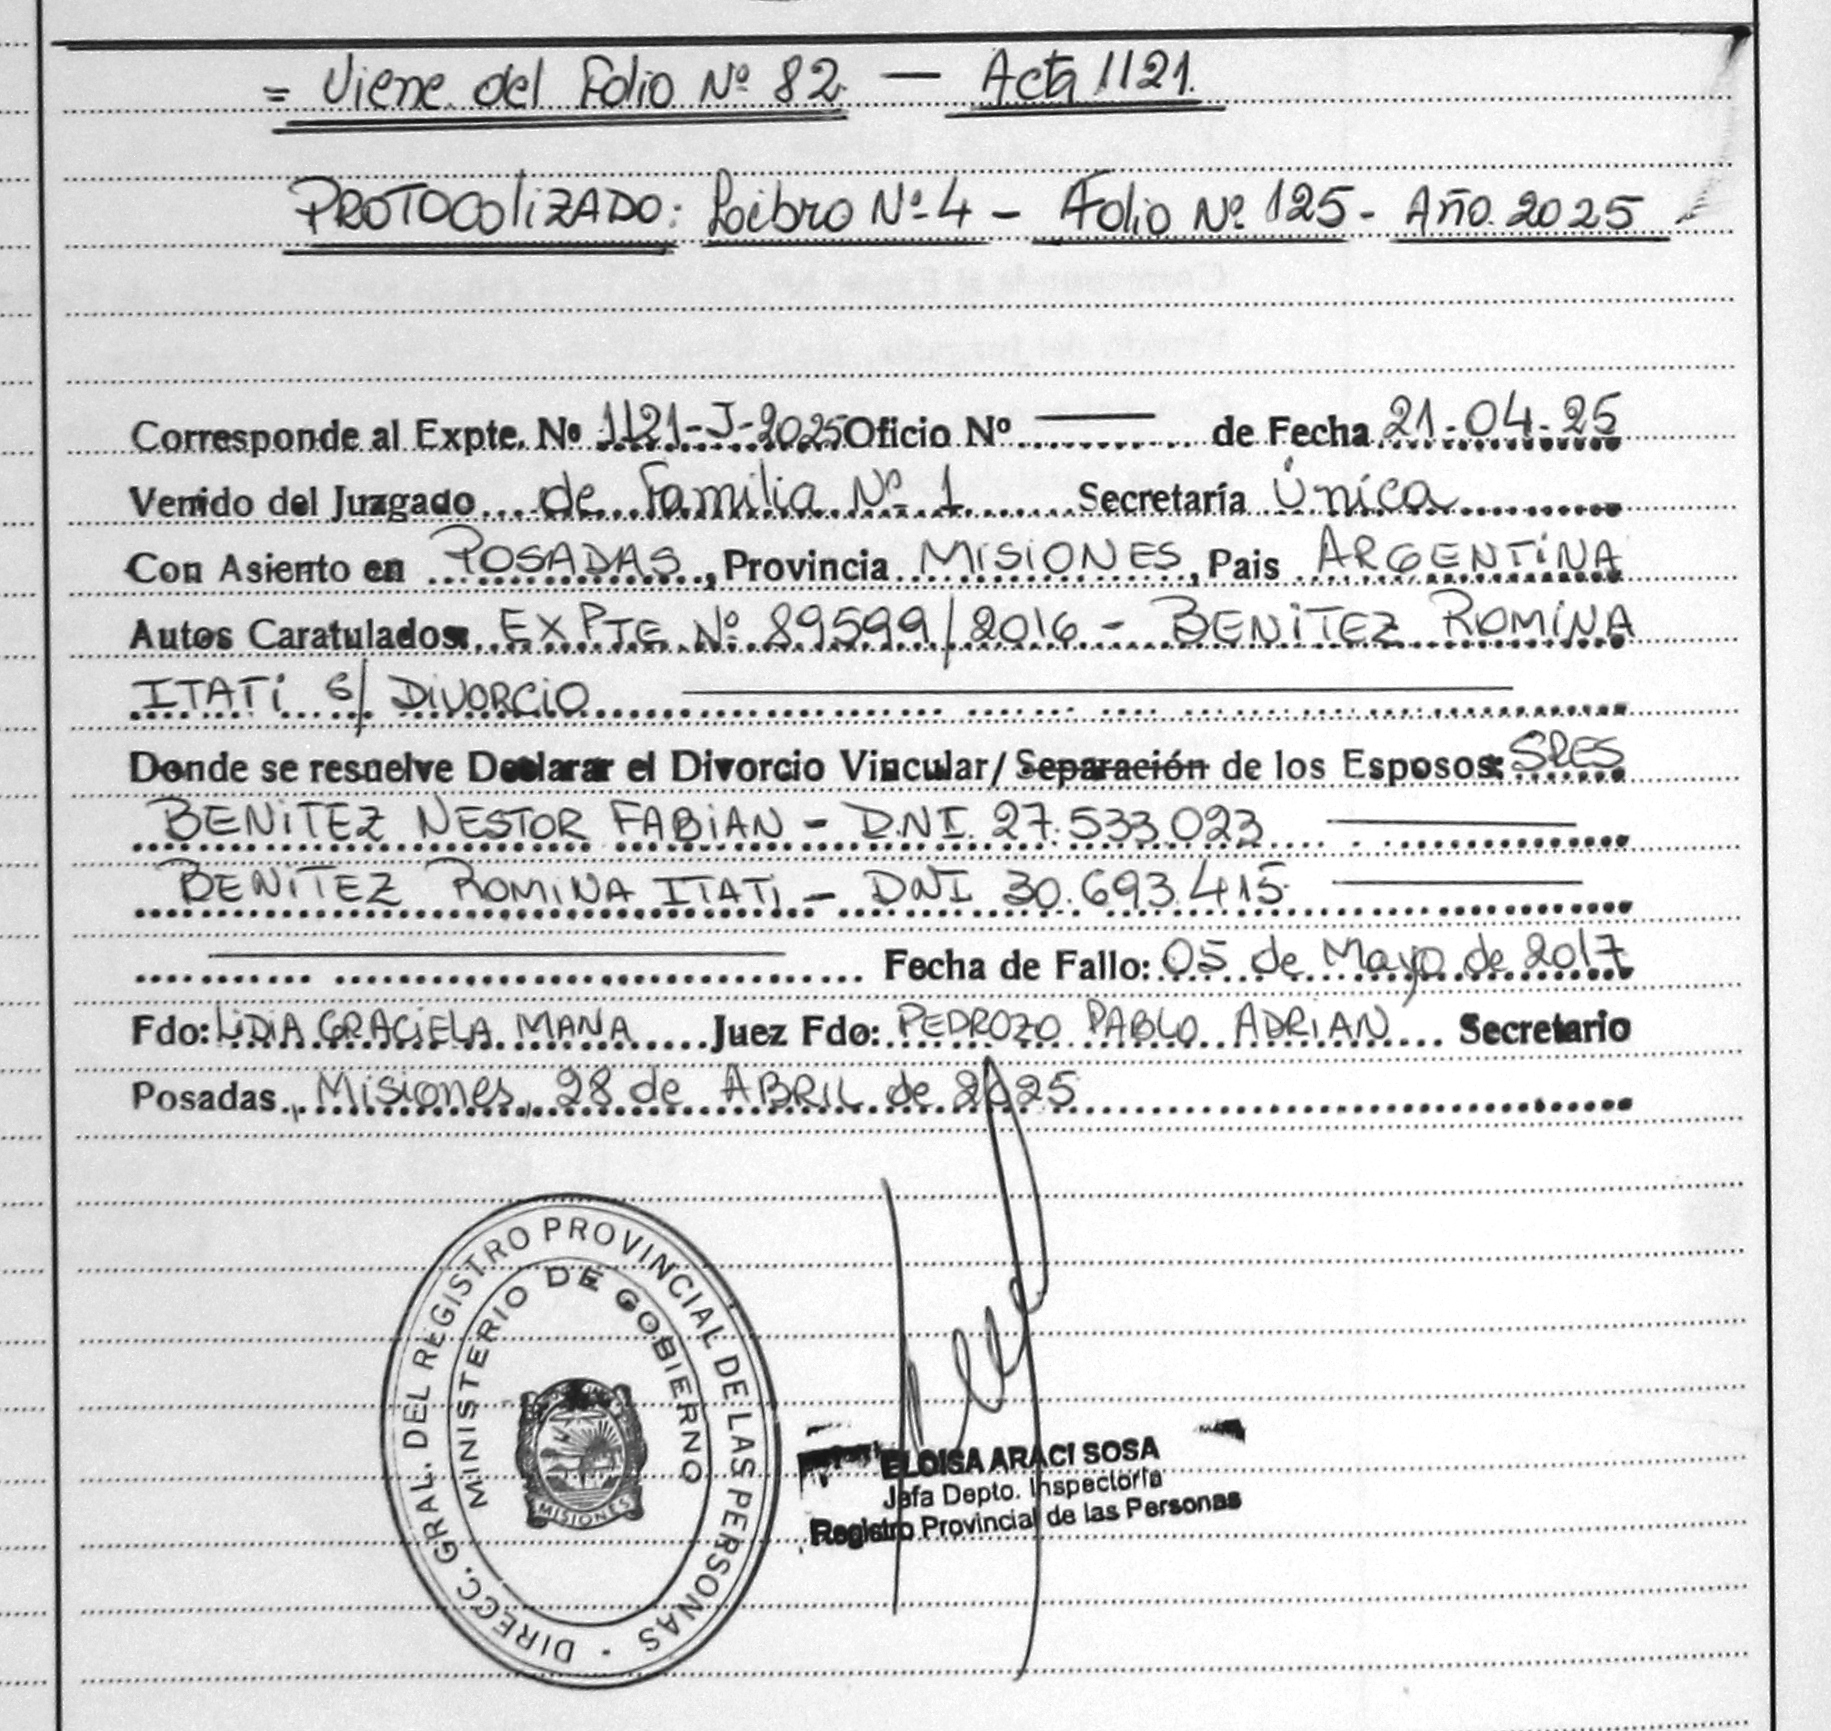 = Viene del Folio Nº 82 — Acta 1121.
PROTOCOLIZADO: Libro Nº 4 - Folio Nº 125 - Año 2025
Corresponde al Expte. Nº 1121-J-2025 Oficio Nº —— de Fecha 21-04-25
Venido del Juzgado de Familia Nº 1 Secretaría Única
Con Asiento en POSADAS, Provincia MISIONES, Pais ARGENTINA
Autos Caratulados: EXPTE Nº 89599/2016 - BENITEZ ROMINA
ITATI S/ DIVORCIO
Donde se resuelve Declarar el Divorcio Vincular/ Separación de los Esposos: SRES
BENITEZ NESTOR FABIAN - D.N.I. 27.533.023
BENITEZ ROMINA ITATI - DNI 30.693.415
Fecha de Fallo: 05 de Mayo de 2017
Fdo: LIDIA GRACIELA MANA Juez Fdo: PEDROZO PABLO ADRIAN Secretario
Posadas, Misiones, 28 de ABRIL de 2025
DIRECC. GRAL. DEL REGISTRO PROVINCIAL DE LAS PERSONAS
MINISTERIO DE GOBIERNO
MISIONES
ELOISA ARACI SOSA
Jefa Depto. Inspectoría
Registro Provincial de las Personas